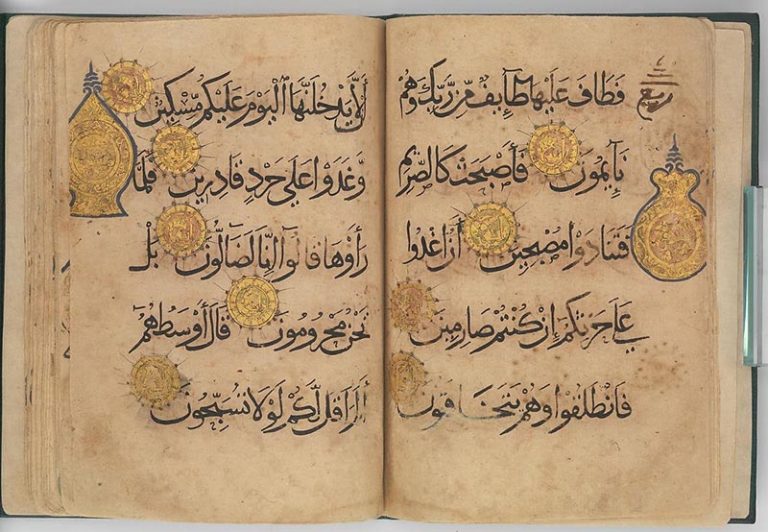 ربع
فَطَافَ عَلَيْهَا طَآئِفٌ مِّن رَّبِّكَ وَهُمْ
نَآئِمُونَ فَأَصْبَحَتْ كَالصَّرِيمِ
فَتَنَادَوْا مُصْبِحِينَ أَنِ اغْدُوا
عَلَى حَرْثِكُمْ إِنْ كُنْتُمْ صَارِمِينَ
فَانْطَلَقُوا وَهُمْ يَتَخَافَتُونَ
أَلَّا يَدْخُلَنَّهَا الْيَوْمَ عَلَيْكُمْ مِّسْكِينٌ
وَّغَدَوْا عَلَى حَرْدٍ قَادِرِينَ فَلَمَّا
رَأَوْهَا قَالُوا إِنَّا لَضَالُّونَ بَلْ
نَحْنُ مَحْرُومُونَ قَالَ أَوْسَطُهُمْ
أَلَمْ أَقُلْ لَّكُمْ لَوْلَا تُسَبِّحُونَ